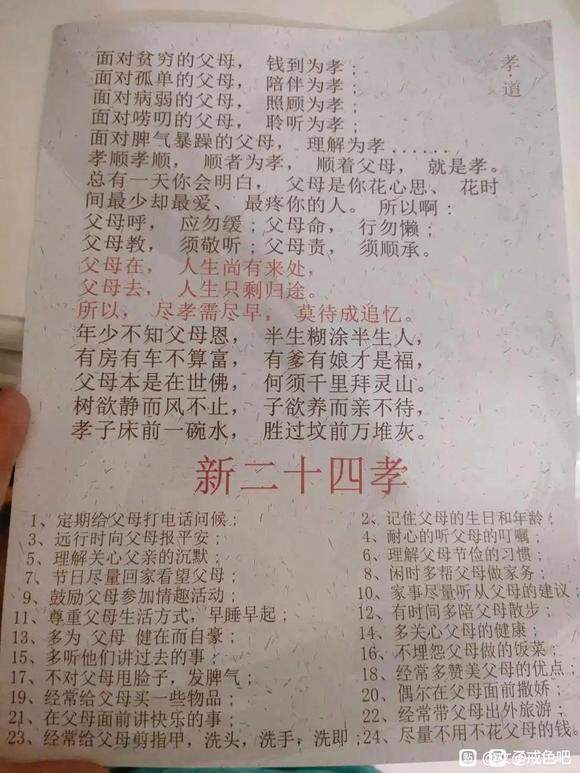 孝·道
面对贫穷的父母， 钱到为孝；
面对孤单的父母， 陪伴为孝；
面对病弱的父母， 照顾为孝；
面对唠叨的父母， 聆听为孝；
面对脾气暴躁的父母， 理解为孝......
孝顺孝顺， 顺者为孝， 顺着父母， 就是孝。
总有一天你会明白， 父母是你花心思、 花时
间最少却最爱、 最疼你的人。 所以啊：
父母呼， 应勿缓；父母命， 行勿懒；
父母教， 须敬听；父母责， 须顺承。
父母在， 人生尚有来处，
父母去， 人生只剩归途。
所以， 尽孝需尽早， 莫待成追忆。
年少不知父母恩， 半生糊涂半生人，
有房有车不算富， 有爹有娘才是福，
父母本是在世佛， 何须千里拜灵山。
树欲静而风不止， 子欲养而亲不待，
孝子床前一碗水， 胜过坟前万堆灰。
新二十四孝
1、定期给父母打电话问候； 2、记住父母的生日和年龄；
3、远行时向父母报平安； 4、耐心的听父母的叮嘱；
5、理解关心父亲的沉默； 6、理解父母节俭的习惯；
7、节日尽量回家看望父母； 8、闲时多帮父母做家务；
9、鼓励父母参加情趣活动； 10、家事尽量听从父母的建议；
11、尊重父母生活方式，早睡早起； 12、有时间多陪父母散步；
13、多为 父母 健在而自豪； 14、多关心父母的健康；
15、多听他们讲过去的事； 16、不埋怨父母做的饭菜；
17、不对父母甩脸子，发脾气； 18、经常多赞美父母的优点；
19、经常给父母买一些物品； 20、偶尔在父母面前撒娇；
21、在父母面前讲快乐的事； 22、经常带父母出外旅游；
23、经常给父母剪指甲，洗头，洗手，洗即； 24、尽量不用不花父母的钱。
贴 @女子戒色吧